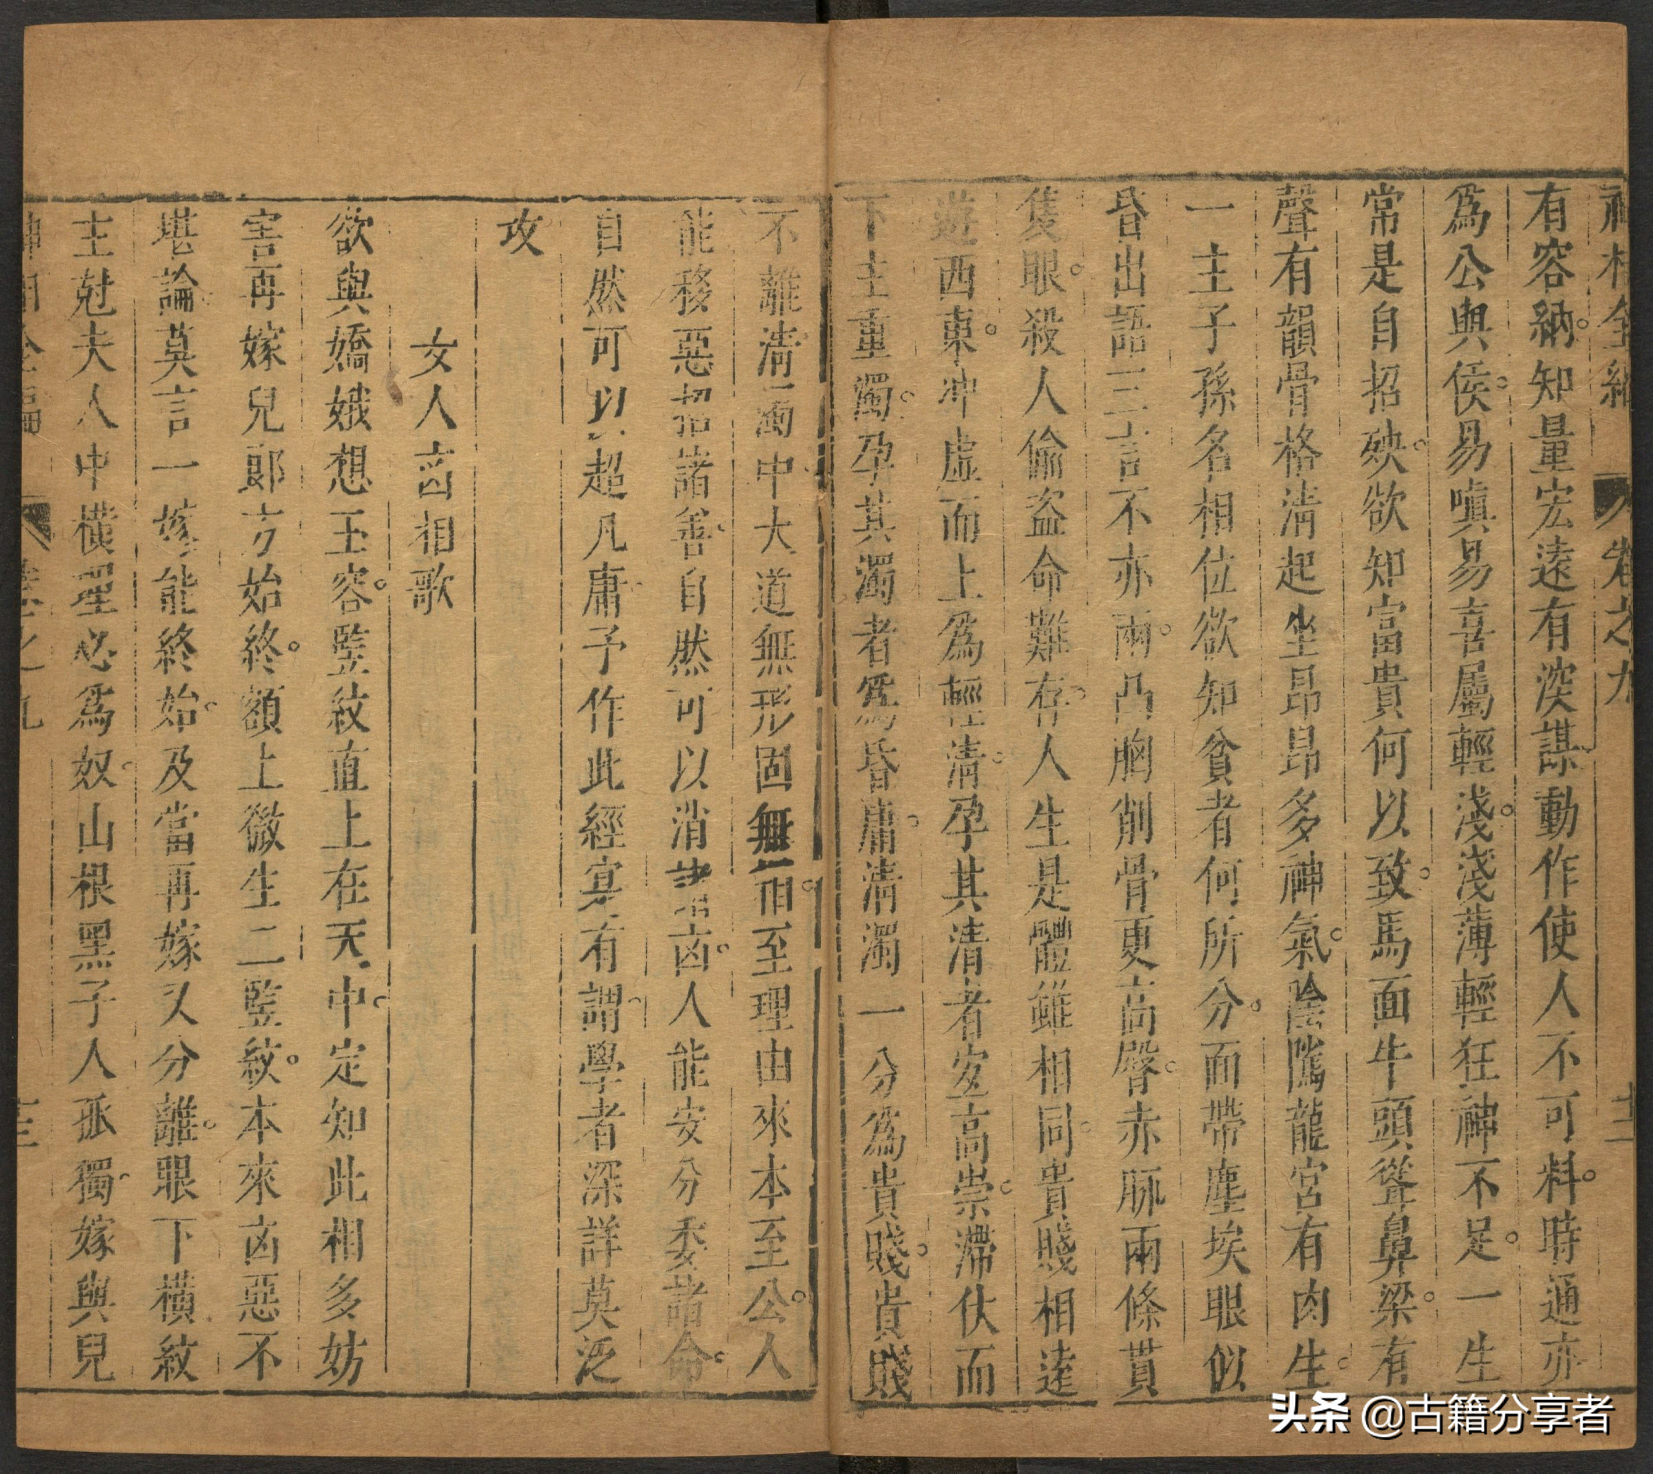 神相全編 卷之九 十二
有容納知量宏遠有深謀動作使人不可料時通亦
爲公與侯易嗔易喜屬輕淺淺薄輕狂神不足一生
常是自招殃欲知富貴何以致馬面牛頭聳鼻梁有
聲有韻骨格清起坐昂昂多神氣陰隲龍宮有肉生
一主子孫名相位欲知貧者何所分面帶塵埃眼似
昏出語三言不亦兩凸胸削骨更高臀赤脈兩條貫
隻眼殺人偷盜命難存人生是體雖相同貴賤相逺
遊西東冲虛而上爲輕清孕其清者安高崇滯伏而
下主重濁孕其濁者爲昏庸清濁一分爲貴賤貴賤
不離清濁中大道無形固無相至理由來本至公人
能移惡招諸善自然可以消諸凶人能安分委諸命
自然可以超凡庸予作此經寔有謂學者深詳莫泛
攻
女人凶相歌
欲與嬌娥想玉容竪紋直上在天中定知此相多妨
害再嫁兒郎方始終額上微生二竪紋本來凶惡不
堪論莫言一嫁能終始及當再嫁又分離眼下橫紋
主尅夫人中橫理必爲奴山根黑子人孤獨嫁與兒
神相全編 卷之九 十三
头条 @古籍分享者